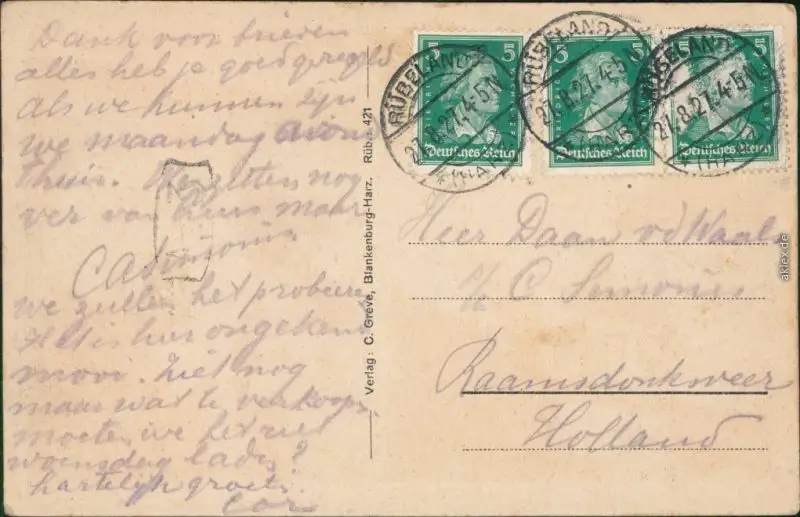 Dank voor brieven
alles heb je goed geregeld
als we kunnen zijn
we maandag avond
thuis. We zitten nog
ver van huis maar
we zullen het proberen
Het is hier ongekend
mooi. Ziet nog
maar wat te verkopen
moeten we het niet
woensdag laden?
hartelijk groets.
Cor
Verlag: C. Greve, Blankenburg-Harz. Rüb. 421
5 5
5
5
Deutsches Reich
Deutsches Reich
Deutsches Reich
RÜBELAND
27.8.27.4-5N
*(HA
RÜBELAND
27.8.27.4-5
RÜBELAND
27.8.27.4-5N
*(HA
Heer Daan vd Waal
C Simonis
Raamsdonksveer
Holland
akpool.de